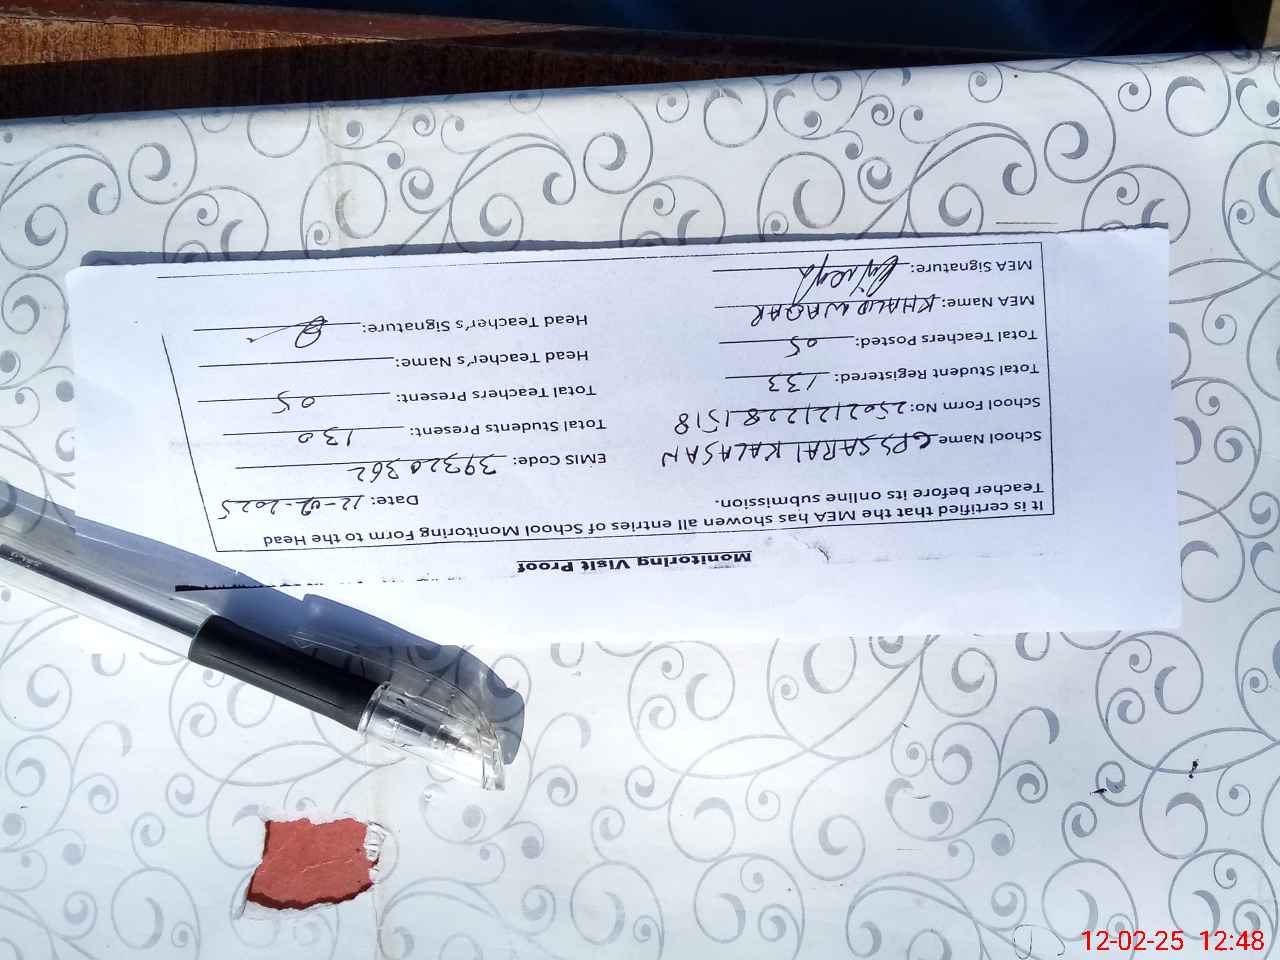 Monitoring Visit Proof
It is certified that the MEA has showen all entries of School Monitoring Form to the Head
Teacher before its online submission.
Date: 12-02-2025
School Name GPS SARAI KALASAN
EMIS Code: 39320362
School Form No: 2502121228 1518
Total Students Present: 130
Total Student Registered: 133
Total Teachers Present: 05
Total Teachers Posted: 05
Head Teacher's Name:
MEA Name: KHALID WAQAR
Head Teacher's Signature:
MEA Signature:
12-02-25 12:48